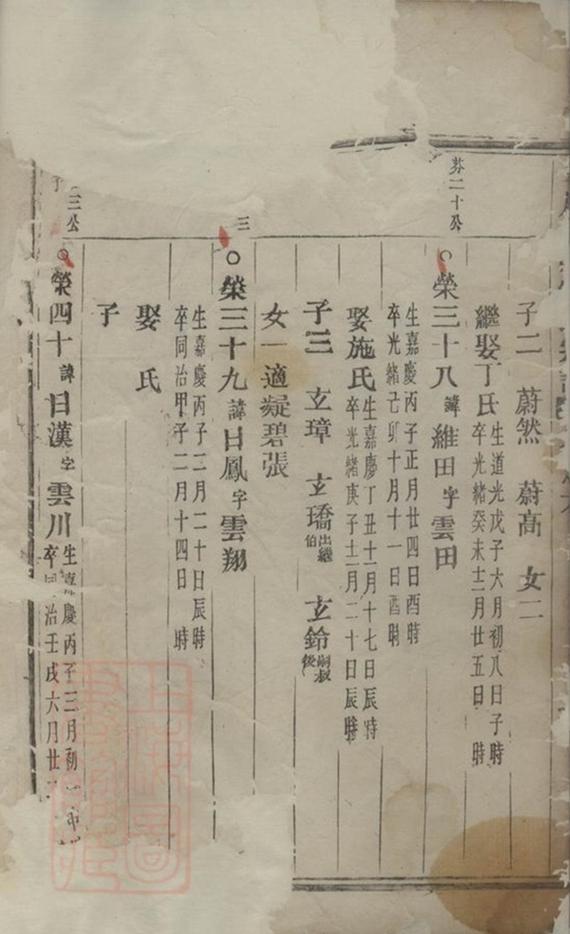 子二 蔚然 蔚高 女二
繼娶丁氏生道光戊子六月初八日子時
卒光緒癸未十二月廿五日 時
芬二十公
榮三十八諱維田字雲田
生嘉慶丙子正月廿四日酉時
卒光緒己卯十月十一日酉時
娶施氏生嘉慶丁丑十一月十七日辰時
卒光緒庚子十二月二十日辰時
子三 玄璋 玄璚出繼伯 玄鈴嗣叔後
女一適凝碧張
三
榮三十九諱日鳳字雲翔
生嘉慶丙子二月二十日辰時
卒同治甲子二月十四日 時
娶 氏
子
三公
榮四十諱日漢字雲川生嘉慶丙子三月初一
卒同治壬戌六月廿